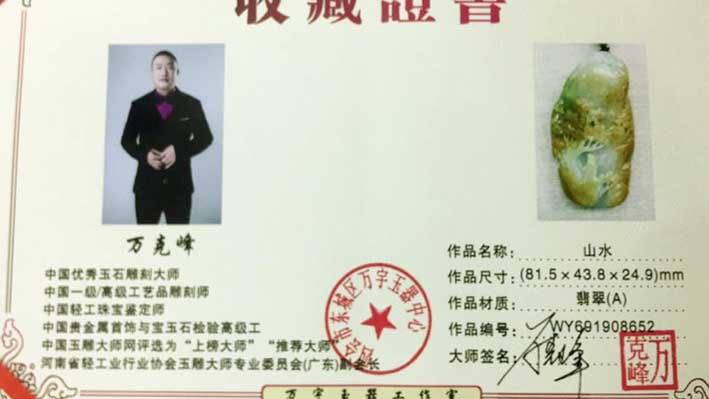 收藏證書
万克峰
中国优秀玉石雕刻大师
中国一级/高级工艺品雕刻师
中国轻工珠宝鉴定师
中国贵金属首饰与宝玉石检验高级工
中国玉雕大师网评选为“上榜大师”“推荐大师”
河南省轻工业行业协会玉雕大师专业委员会(广东)副会长
四会市东城区万字玉器中心
作品名称: 山水
作品尺寸: (81.5×43.8×24.9)mm
作品材质: 翡翠(A)
作品编号: WY691908652
大师签名:
万克峰
万字玉器工作室